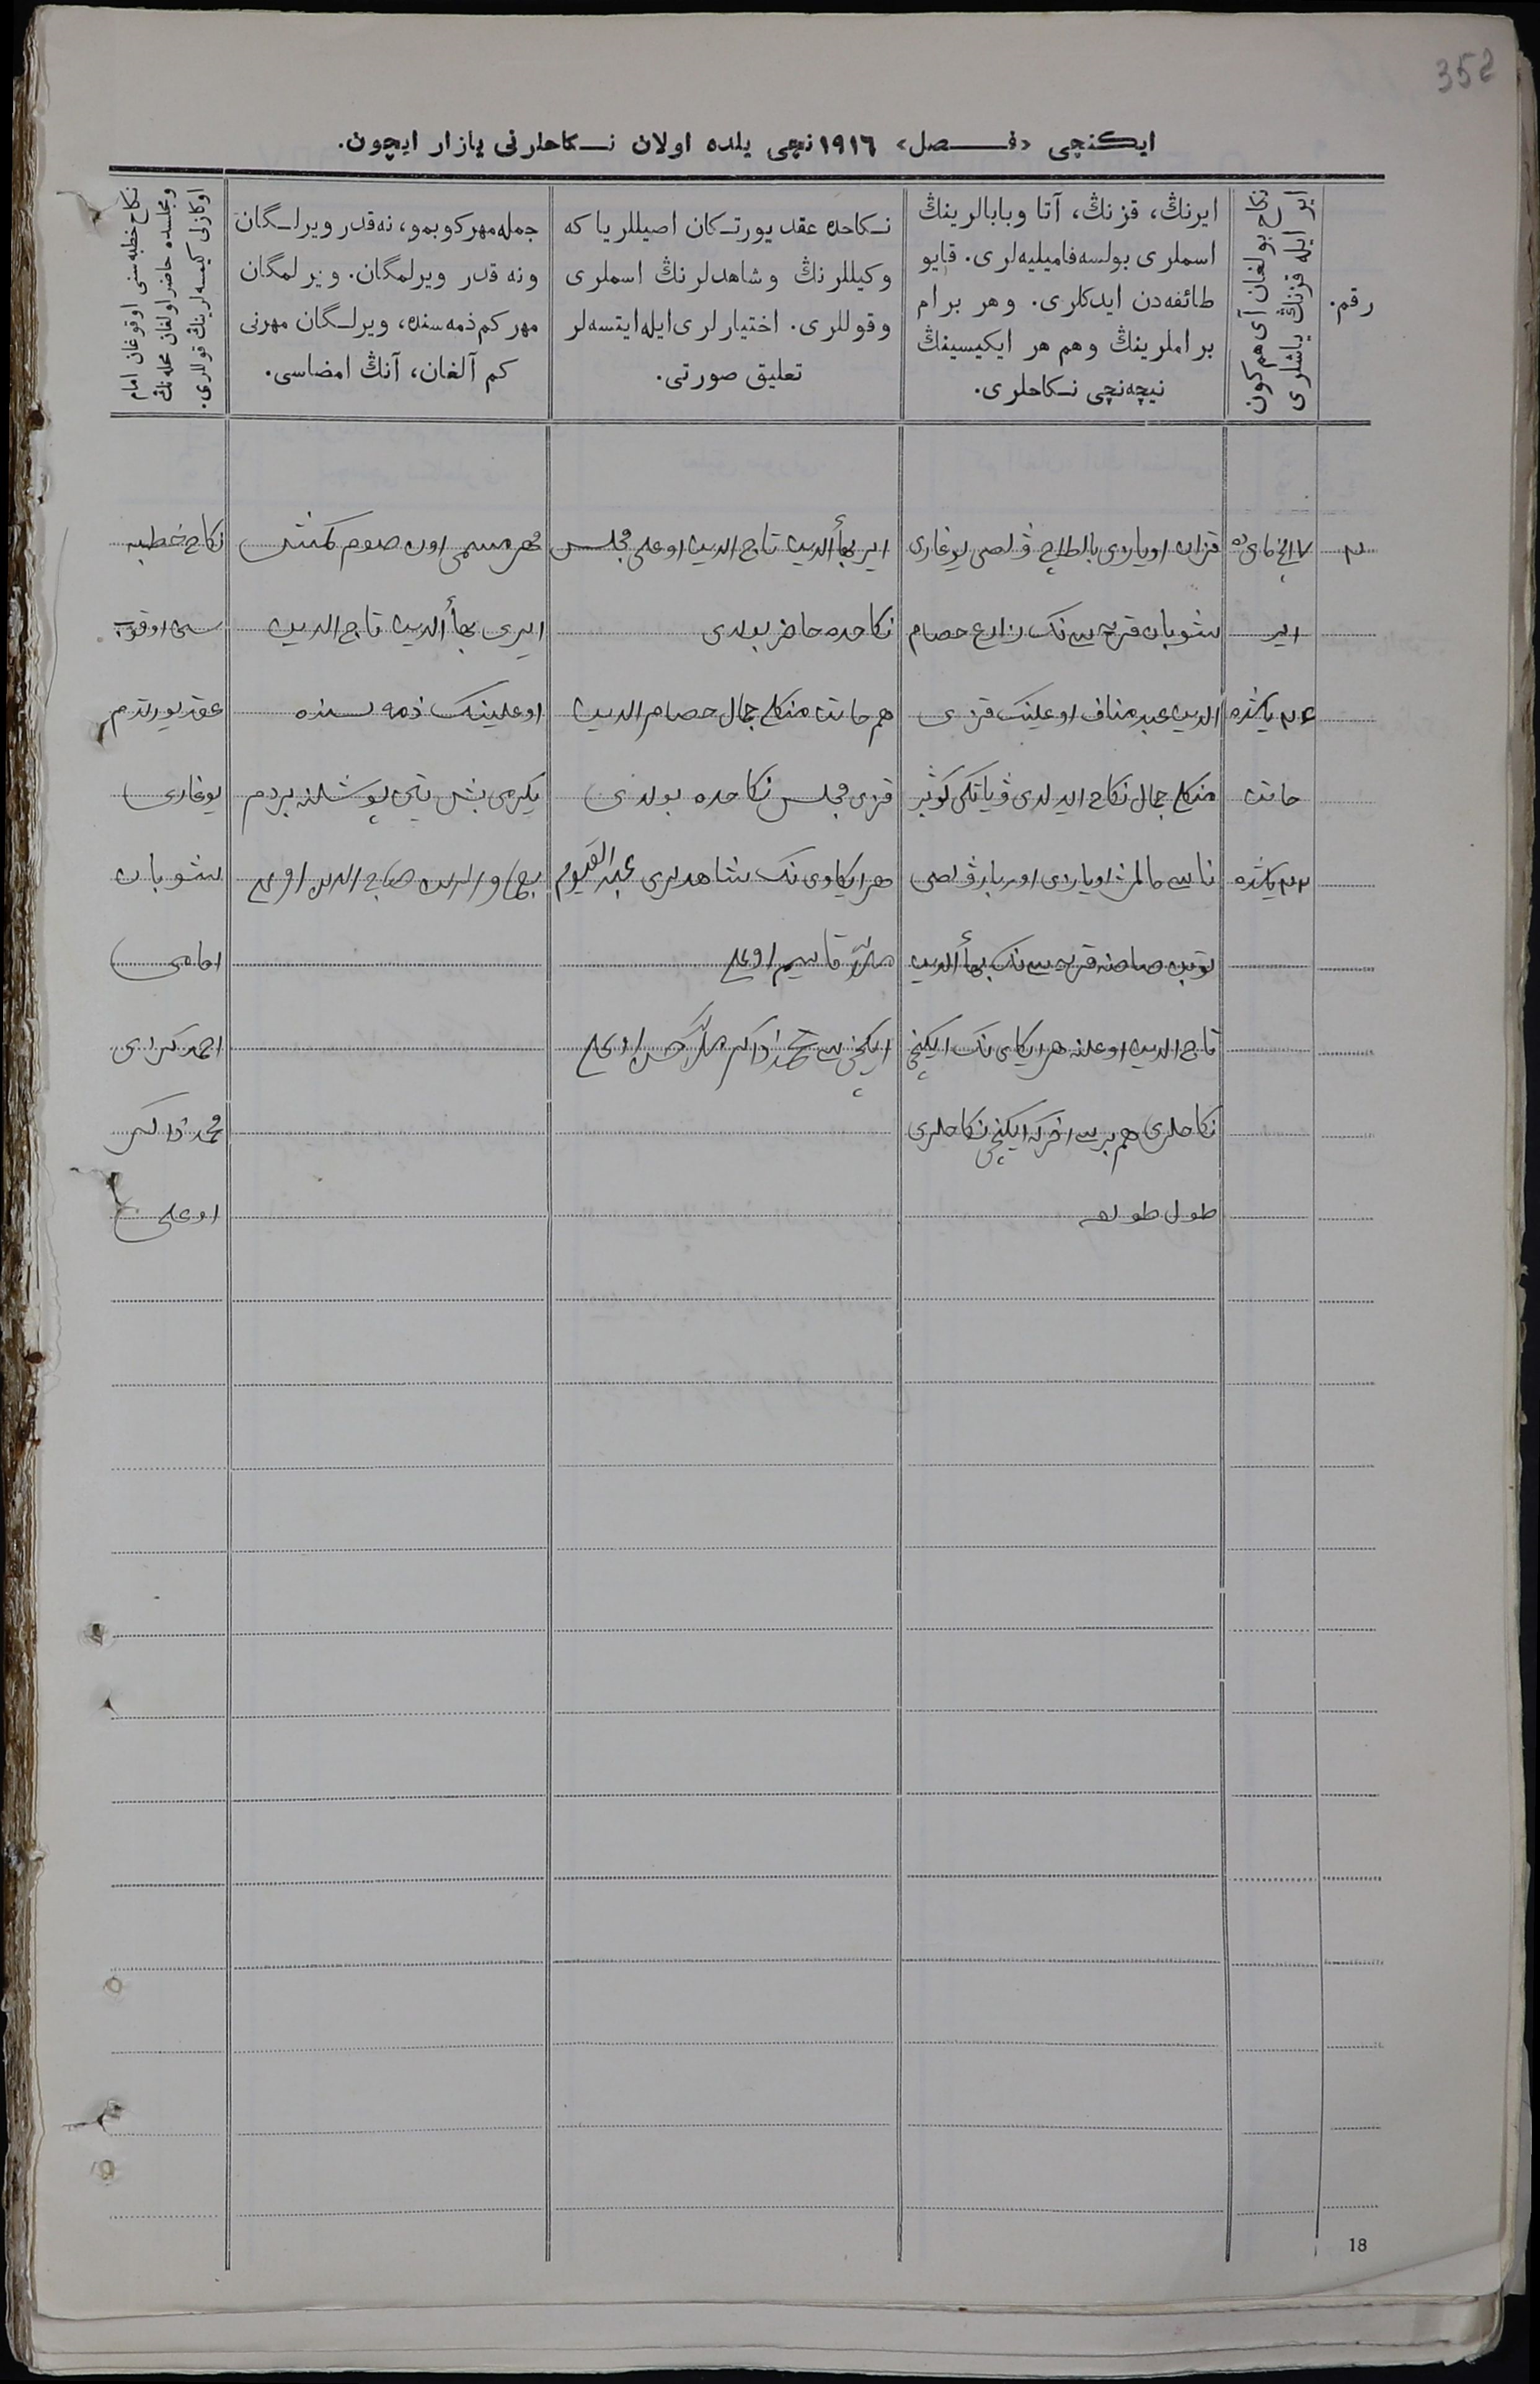 352
ایكنچی «فـصل» ١٩١٦ نچی یلده اولان نـكاحلرنی یازار ایچون.
رقم.
نكاح بولغان آی هم كون
ایر ایله قزنڭ یاشلری
ایرنڭ، قزنڭ، آتا وبابالرینڭ
اسملری بولسه فامیلیه‌لری. قایو
طائفه‌دن ایدكلری. وهر برام
براملرینڭ وهم هر ایكیسینڭ
نیچه‌نچی نـكاحلری.
نـكاحده عقد یورتـكان اصیللریا كه
وكیللرنڭ وشاهدلرنڭ اسملری
وقوللری. اختیارلری‌ایله‌ایتسه‌لر
تعلیق صورتی.
جمله‌مهركوبمو، نه‌قدر ویرلـگان
ونه قدر ویرلمگان. ویرلمگان
مهركم‌ذمه‌سنده، ویرلـگان مهرنی
كم آلغان، آنڭ امضاسی.
نكاح خطبه‌سنی اوقوغان امام
ومجلسده حاضر اولغان محله‌نڭ
اوكازلی كیمسه‌لرینڭ قوللری.
٢
ایر
٢٤ یاشنده
خاتن
٢٢ یاشنده
قزان اویازی بالطاچ ڤلصی یوغاری
شوبان قریه‌سی‌نك زارع حصام
الدین عبدمناف اوغلینك قزی
منكلی جمال نكاح ایدلدی ڤیاتكی گوبیر
ناسی مالمژ اویازی اوربار ڤلصی
قریه‌سی‌نك بهأالدین
تاج الدین اوغلنه هر ایكاوی‌نك ایكنچی
نكاحلری هم بری آخرگه ایكنچی نكاحلری
طول طولغه
ایر بهأالدین تاج الدین اوغلی مجلس
نكاحده حاضر بولدی
هم خاتن منكلی جمال حصام الدین
قزی مجلس نكاحده بولدی
هر ایكاوی‌نك شاهدلری عبدالقیوم
ملا قاسیم اوغلی
ایكنچی‌سی محمدذاكر ملا اوغلی
مهر مسمی اون صوم كمش
ایری بهأالدین تاج الدین
اوغلینك ذمه‌سنده
یكرمی بش تین پوشلنه بردم
بهاوالدین تاج الدین اوغلی
نكاح خطبه
سی اوقوب
عقد یورتدم
یوغاری
شوبان
امامی
احمدگرای
محمدذاكر
اوغلی
18